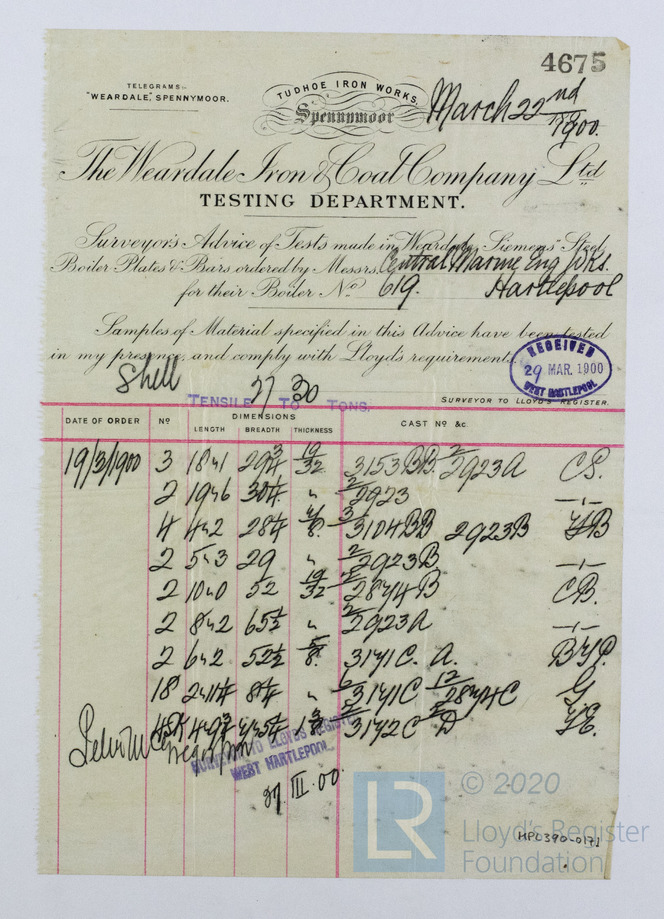 4675
TELEGRAMS:-
"WEARDALE," SPENNYMOOR.
TUDHOE IRON WORKS,
Spennymoor
March 22nd
1900.
The Weardale Iron & Coal Company Ltd
TESTING DEPARTMENT.
Surveyor's Advice of Tests made in "Weardale Siemens" Steel
Boiler Plates & Bars ordered by Messrs. Central Marine Eng Wks.
for their Boiler No 619. Hartlepool
Samples of Material specified in this Advice have been tested
in my presence, and comply with Lloyd's requirements.
RECEIVED
29 MAR. 1900
WEST HARTLEPOOL
Shell 27 30
TENSILE TO TONS.
SURVEYOR TO LLOYD'S REGISTER.
DATE OF ORDER No DIMENSIONS CAST No &c.
LENGTH BREADTH THICKNESS
19/3/1900 3 19/32 3153BB. 2/2923A CS.
2 " 2/2923 -1-
4 3/3104BB 2923B
2 29 " 2/2923B -1-
2 52 19/32 2/2874B CB.
2 65½ " 2/2923A -1-
2 52½ 5/8 3171C. A.
18 " 6/3171C 12/2874C G
3172C D
SURVEYOR TO LLOYDS REGISTER
WEST HARTLEPOOL
III.00.
LR
© 2020
Lloyd's Register
Foundation
HPL390-0171